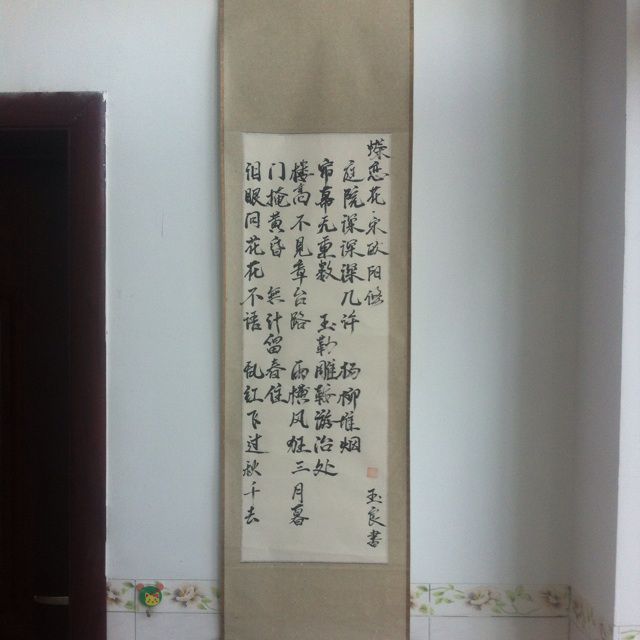 蝶恋花 宋欧阳修
庭院深深深几许 杨柳堆烟
帘幕无重数 玉勒雕鞍游冶处
楼高不见章台路 雨横风狂三月暮
门掩黄昏 无计留春住
泪眼问花花不语 乱红飞过秋千去
玉良书